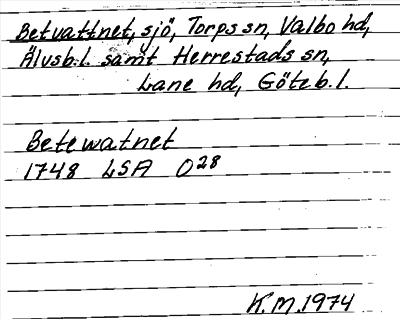 Betvattnet, sjö, Torps sn, Valbo hd,
Älvsb.l. samt Herrestads sn,
Lane hd, Göteb.l.
Betewatnet
1748 LSA O28
K.M.1974